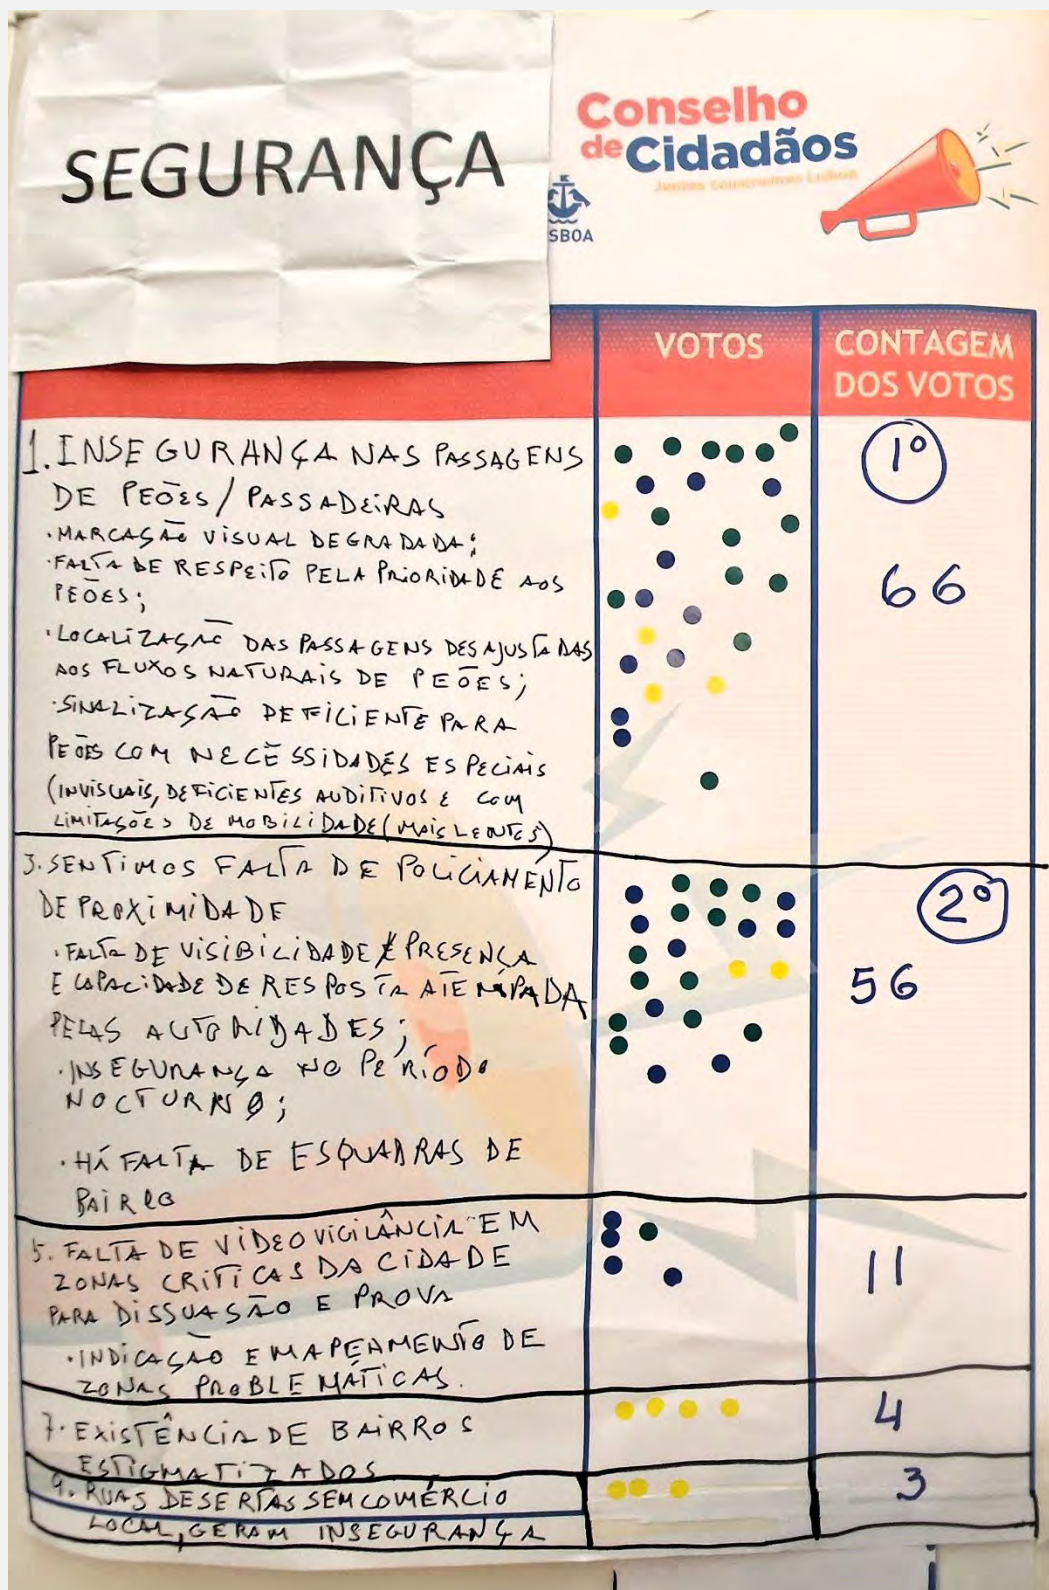 SEGURANÇA
Conselho
de Cidadãos
Juntos construímos Lisboa
SBOA
VOTOS
CONTAGEM
DOS VOTOS
1. INSEGURANÇA NAS PASSAGENS
DE PEÕES/PASSADEIRAS
· MARCAÇÃO VISUAL DEGRADADA;
· FALTA DE RESPEITO PELA PRIORIDADE AOS
PEÕES;
· LOCALIZAÇÃO DAS PASSAGENS DESAJUSTADAS
AOS FLUXOS NATURAIS DE PEÕES;
· SINALIZAÇÃO DEFICIENTE PARA
PEÕES COM NECESSIDADES ESPECIAIS
(INVISUAIS, DEFICIENTES AUDITIVOS E COM
LIMITAÇÕES DE MOBILIDADE (MAIS LENTOS)
1º
66
3. SENTIMOS FALTA DE POLICIAMENTO
DE PROXIMIDADE
· FALTA DE VISIBILIDADE E PRESENÇA
E CAPACIDADE DE RESPOSTA ATEMPADA
PELAS AUTORIDADES;
· INSEGURANÇA NO PERÍODO
NOCTURNO;
· HÁ FALTA DE ESQUADRAS DE
BAIRRO
2º
56
5. FALTA DE VIDEOVIGILÂNCIA EM
ZONAS CRITICAS DA CIDADE
PARA DISSUASÃO E PROVA
· INDICAÇÃO E MAPEAMENTO DE
ZONAS PROBLEMÁTICAS.
11
7. EXISTÊNCIA DE BAIRROS
ESTIGMATIZADOS
4
9. RUAS DESERTAS SEM COMÉRCIO
LOCAL, GERAM INSEGURANÇA
3